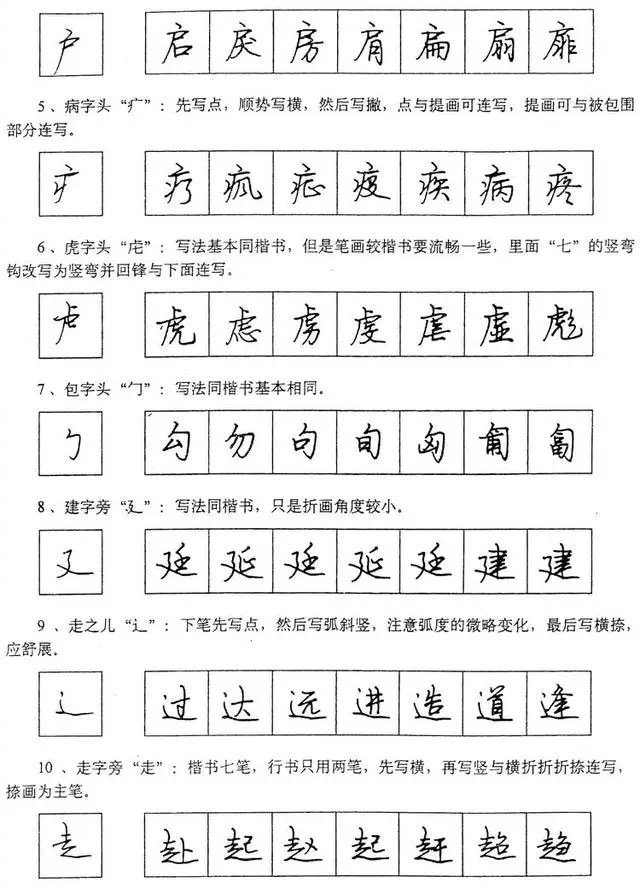 户 启 戾 房 肩 扁 扇 扉
5、病字头“疒”：先写点，顺势写横，然后写撇，点与提画可连写，提画可与被包围
部分连写。
疒 疗 疯 症 疫 疾 病 疼
6、虎字头“虍”：写法基本同楷书，但是笔画较楷书要流畅一些，里面“七”的竖弯
钩改写为竖弯并回锋与下面连写。
虍 虎 虑 虏 虔 虐 虚 彪
7、包字头“勹”：写法同楷书基本相同。
勹 勾 勿 句 旬 匈 匍 匐
8、建字旁“廴”：写法同楷书，只是折画角度较小。
廴 廷 延 廷 延 廷 建 建
9 、走之儿“辶”：下笔先写点，然后写弧斜竖，注意弧度的微略变化，最后写横捺，
应舒展。
辶 过 达 远 进 造 道 逢
10 、走字旁“走”：楷书七笔，行书只用两笔，先写横，再写竖与横折折折捺连写，
捺画为主笔。
走 赴 起 赵 起 赶 超 趋